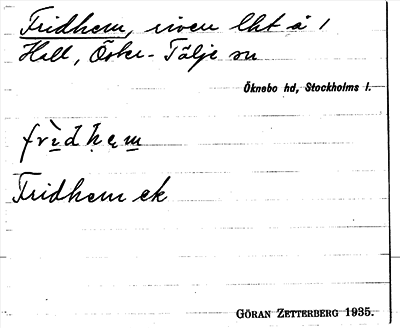 Fridhem, riven lht å 1
Hall, Öster-Tälje sn
Öknebo hd, Stockholms l.
frìdhem
Fridhem ek
GÖRAN ZETTERBERG 1935.